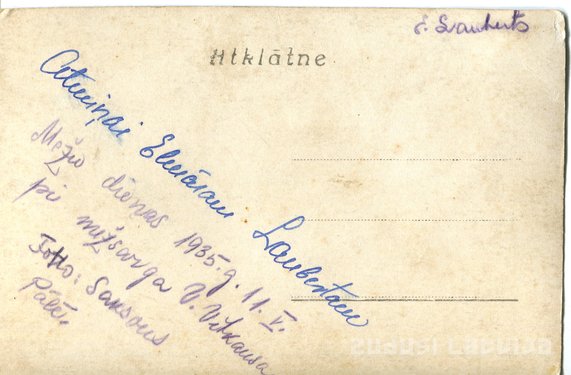 E. Lauberts
Atklātne
Atmiņai Elmāram Laubertam
Mežu dienas 1935.g. 11.V.
pi mežsarga V. Vitkausa
Foto: Saksons
Pālē.